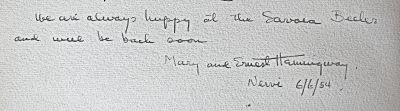 We are always happy at the Savoia Beeler
and will be back soon
Mary and Ernest Hemingway.
Nervi 6/6/54.